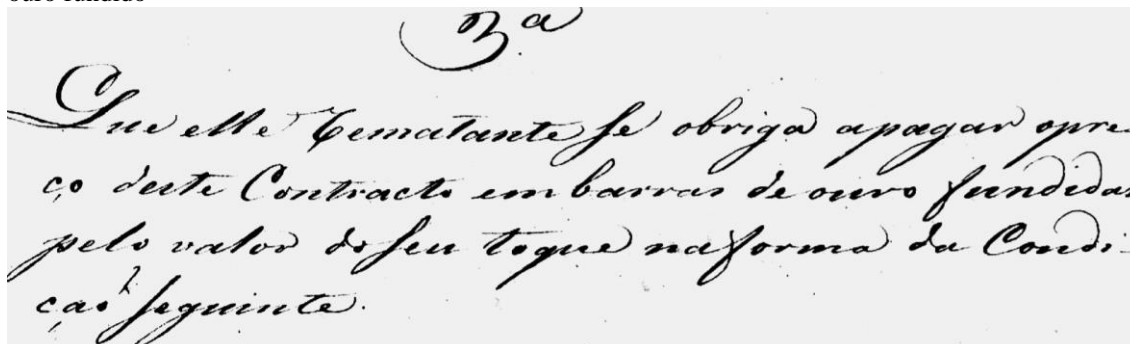 ouro fundido
3ª
Que elle Rematante se obriga apagar opre
ço deste Contracto em barras de ouro fundidas
pelo valor do seu toque naforma da Condi-
çaõ seguinte.